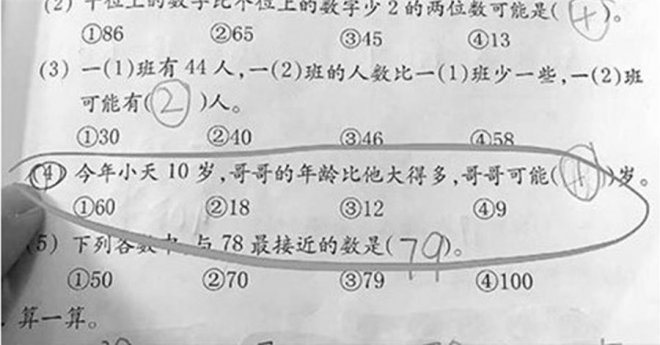 (2) 十位上的数字比个位上的数字少2的两位数可能是( 4 )。
①86 ②65 ③45 ④13
(3) 一(1)班有44人,一(2)班的人数比一(1)班少一些,一(2)班
可能有( 2 )人。
①30 ②40 ③46 ④58
(4) 今年小天10岁,哥哥的年龄比他大得多,哥哥可能( )岁。
①60 ②18 ③12 ④9
(5) 下列各数中,与78最接近的数是(79)。
①50 ②70 ③79 ④100
算一算。